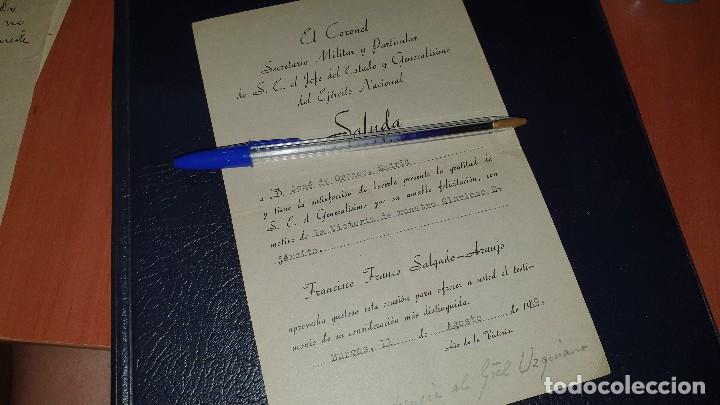 El Coronel
Secretario Militar y Particular
de S. E. el Jefe del Estado y Generalísimo
del Ejército Nacional
Saluda
a D. José de
y tiene la satisfacción de hacerle presente la gratitud de
S. E. el Generalísimo por su amable felicitación, con
motivo de la Victoria de nuestro Glorioso E-
jército.
Francisco Franco Salgado-Araujo
aprovecha gustoso esta ocasión para ofrecer a usted el testi-
monio de su consideración más distinguida.
Burgos, 11 de Agosto de 19
Año de la Victoria.
al Gral
todocoleccion.net